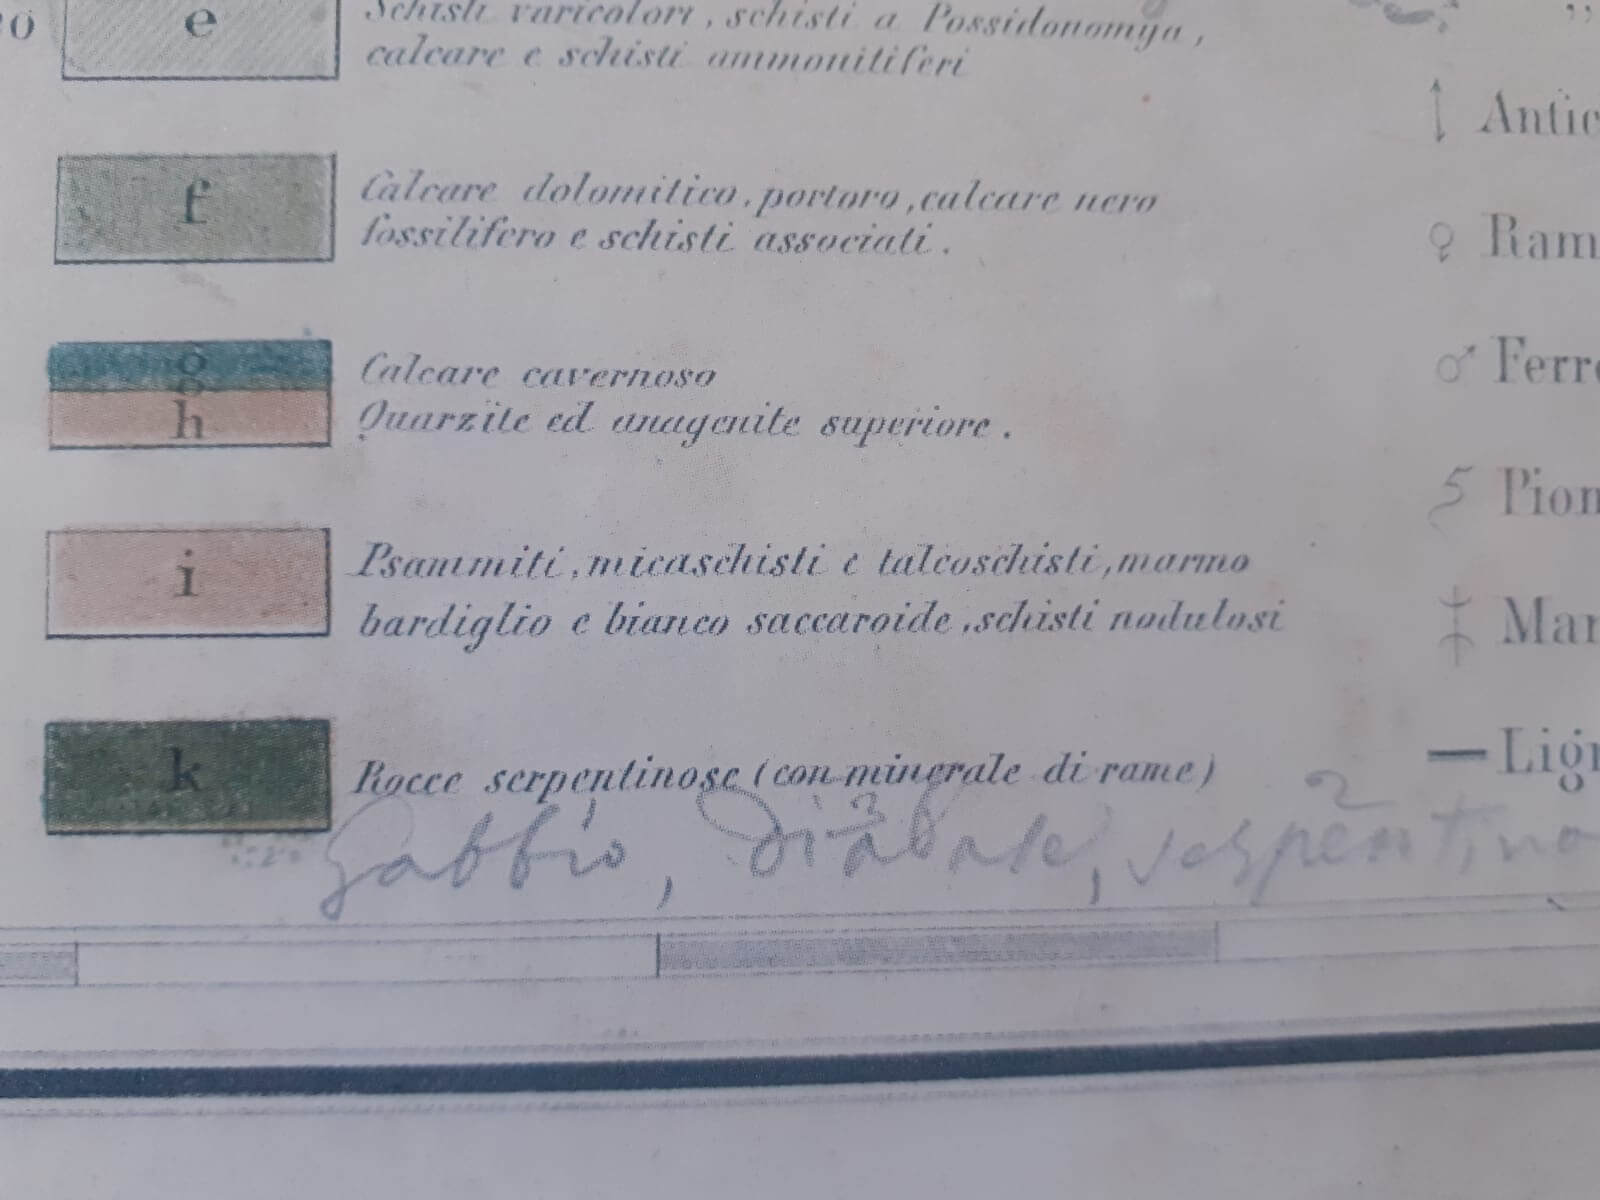 e
Schisti varicolori, schisti a Possidonomya,
calcare e schisti ammonitiferi
f
Calcare dolomitico, portoro, calcare nero
fossilifero e schisti associati.
g
Calcare cavernoso
h
Quarzite ed anagenite superiore.
i
Psammiti, micaschisti e talcoschisti, marmo
bardiglio e bianco saccaroide, schisti nodulosi
k
Rocce serpentinose (con minerale di rame)
Gabbro, Diabase, serpentino
Antic
♀ Ram
♂ Ferro
Pion
Mar
Lign